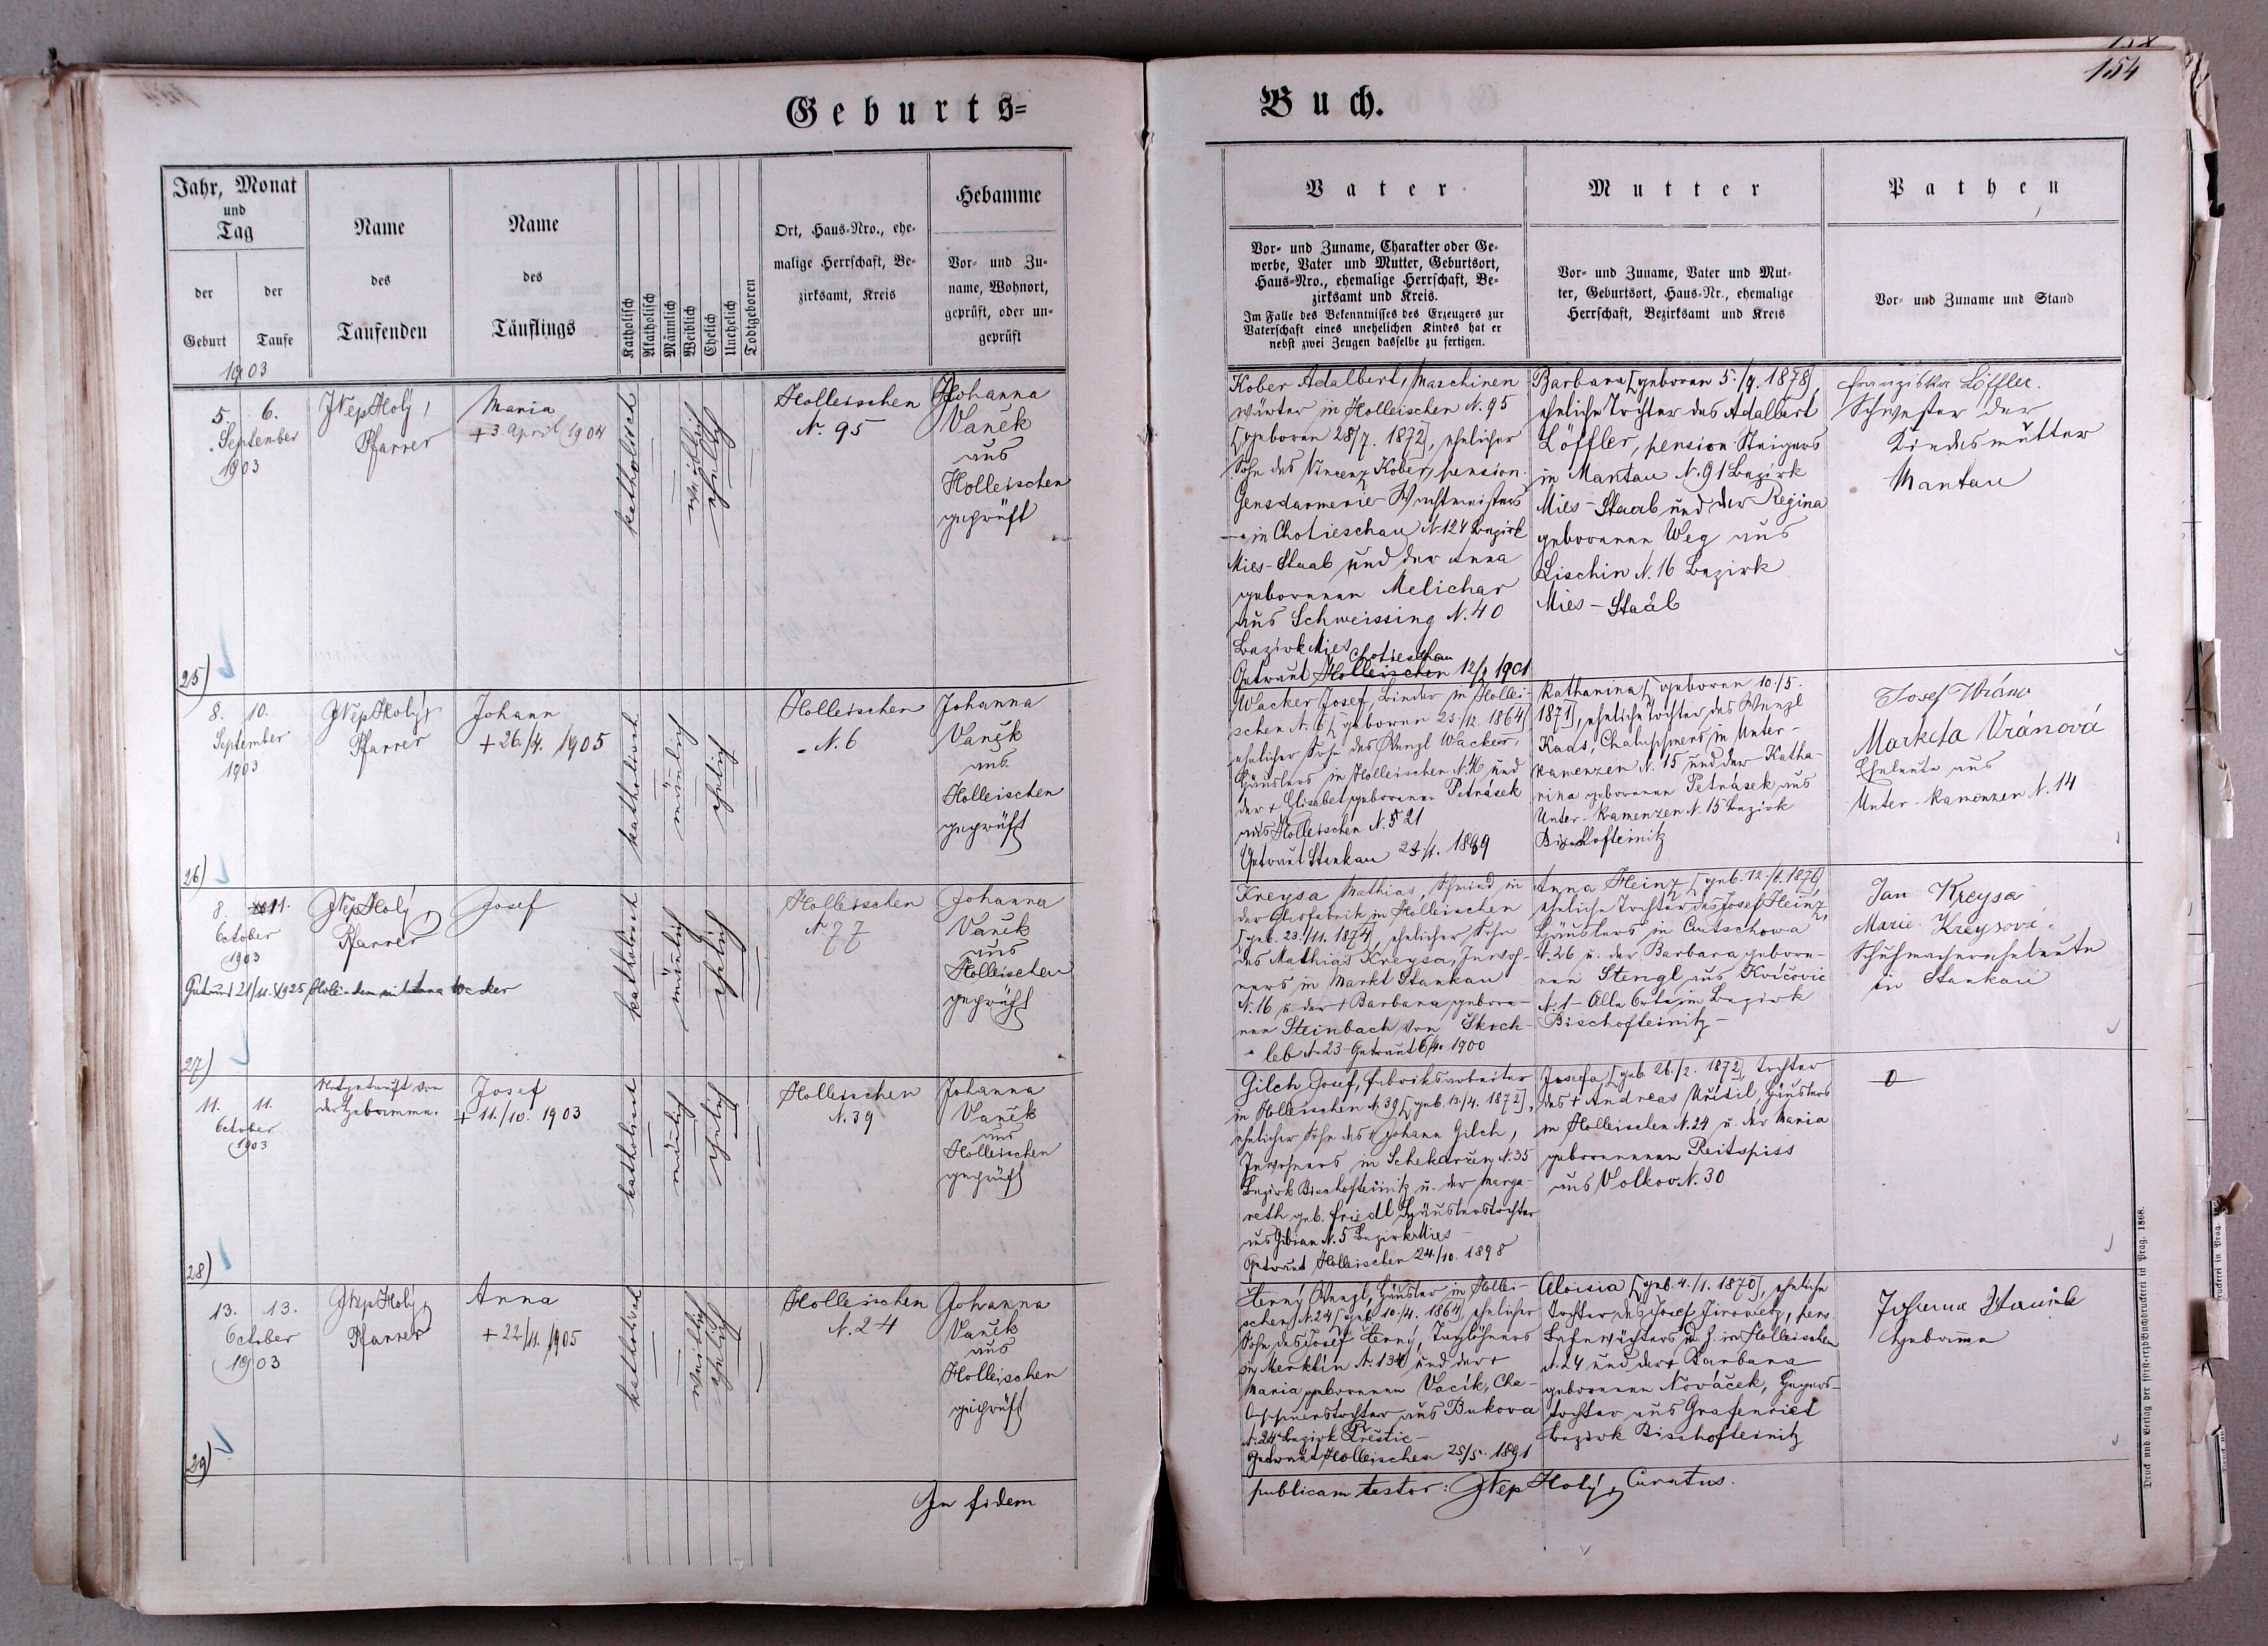 158
154
Geburts=
Buch.
Jahr, Monat
und
Tag
der
Geburt
der
Taufe
Name
des
Taufenden
Name
des
Täuflings
Katholisch
Akatholisch
Männlich
Weiblich
Ehelich
Unehelich
Todtgeboren
Ort, Haus-Nro., ehe-
malige Herrschaft, Be-
zirksamt, Kreis
Hebamme
Vor- und Zu-
name, Wohnort,
geprüft, oder un-
geprüft
Vater
Vor- und Zuname, Charakter oder Ge-
werbe, Vater und Mutter, Geburtsort,
Haus-Nro., ehemalige Herrschaft, Be-
zirksamt und Kreis.
Im Falle des Bekenntnisses des Erzeugers zur
Vaterschaft eines unehelichen Kindes hat er
nebst zwei Zeugen dasselbe zu fertigen.
Mutter
Vor- und Zuname, Vater und Mut-
ter, Geburtsort, Haus-Nr., ehemalige
Herrschaft, Bezirksamt und Kreis
Pathen
Vor- und Zuname und Stand
1903
5. 6.
September
1903
25)
JNepHolý,
Pfarrer
Maria
+ 3. April 1904
katholisch
weiblich
ehelich
Holleischen
N. 95
Johanna
Vaněk
aus
Holleischen
geprüft
Kober Adalbert, Maschinen
wärter in Holleischen N. 95
[geboren 28/7. 1872], ehelicher
Sohn des Vincenz Kober, pension.
Gensdarmerie-Wachtmeisters
in Chotieschau N. 124 Bezirk
Mies-Staab und der Anna
geborenen Melichar
aus Schweissing N. 40
Bezirk Mies
Chotieschau
Getraut Holleischen 12/2 1901
Barbara [geboren 5./9. 1878],
eheliche Tochter des Adalbert
Löffler, pension. Steigers
in Mantau N. 91 Bezirk
Mies-Staab und der Regina
geborenen Weg aus
Lischin N. 16 Bezirk
Mies-Staab
Franziska Löffler.
Schwester der
Kindesmutter
Mantau
8. 10.
September
1903
26)
JNepHolý,
Pfarrer
Johann
+ 26./4. 1905
katholisch
männlich
ehelich
Holleischen
N. 6
Johanna
Vaněk
aus
Holleischen
geprüft
Wacker Josef, Binder in Hollei-
schen N. 6 [geboren 25./12. 1864]
ehelicher Sohn des Wenzl Wacker,
Häuslers in Holleischen N. 46 und
der + Elisabet geborenen Petrásek
aus Holleischen N. 21
Getraut Stankau 1889
Katharina [geboren 10./5.
1871], eheliche Tochter des Wenzl
Kads, Chaluppners in Unter-
kamenzen N. 15 und der Katha-
rina geborenen Petrásek aus
Unter-kamenzen N. 15 Bezirk
Bischofteinitz
Josef Vrána
Marketa Vránová
Eheleute aus
Unter-kamenzen N. 14
8. 11.
October
1903
Getraut 21/11. 1925
27)
JNepHolý,
Pfarrer
Josef
katholisch
männlich
ehelich
Holleischen
N. 77
Johanna
Vaněk
aus
Holleischen
geprüft
Kreysa Mathias, Schmied in
der Glasfabrik in Holleischen
[geb. 23./11. 1874], ehelicher Sohn
des Mathias Kreysa, Inwoh-
ners in Markt Stankau
N. 16 u. der + Barbara gebore-
nen Steinbach von Skoch-
leb N. 23 - Getraut 6/4. 1900
Anna Heinz [geb. 12./6. 1876],
eheliche Tochter des Josef Heinz,
Häuslers in Cutschowa
N. 26 u. der Barbara gebore-
nen Stengl aus Kvíčovic
N. 1 - Alle Orte im Bezirk
Bischofteinitz -
Jan Kreysa
Marie Kreysová.
Schuhmachereheleute
in Stankau
11. 11.
October
1903
28)
Notgetauft von
der Hebamme.
Josef
+ 11./10. 1903
katholisch
männlich
ehelich
Holleischen
N. 39
Johanna
Vaněk
aus
Holleischen
geprüft
Gilch Josef, Fabriksarbeiter
in Holleischen N. 39 [geb. 13./4. 1872],
ehelicher Sohn des + Johann Gilch,
Inwohners in Schekarzen N. 35
Bezirk Bischofteinitz u. der Marga-
reth geb. Friedl Häuslerstochter
aus Gibian N. 5 Bezirk Mies
Getraut Holleischen 24./10. 1898
Josefa [geb. 26./2. 1872], Tochter
des + Andreas Ulčil, Häuslers
in Holleischen N. 24 u. der Maria
geborenenen Reitspiss
aus Volkov N. 30
0
13. 13.
October
1903
29)
JNepHolý,
Pfarrer
Anna
+ 22/11. 1905
katholisch
weiblich
ehelich
Holleischen
N. 24
Johanna
Vaněk
aus
Holleischen
geprüft
Černý Wenzl, Häusler in Hollei-
schen N. 24 [geb. 10./4. 1864], ehelicher
Sohn des Josef Černý, Taglöhners
in Merklín N. 134 und der +
Maria geborenen Vacík, Cha-
luppnerstochter aus Bukova
N. 24 Bezirk Přestic -
Getraut Holleischen 25./5. 1891
Aloisia [geb. 4./1. 1870], eheliche
Tochter des Josef Jirovetz, pens.
Bahnwächters d. Z. in Holleischen
N. 24 und der + Barbara
geborenen Nováček, Hegers-
tochter aus Grafenried
Bezirk Bischofteinitz
Johanna Waniek
Hebamme
In fidem
publicam testor: JNepHolý, Curatus.
Druck und Verlag der fürst-erzb. Buchdruckerei in Prag. 1868.